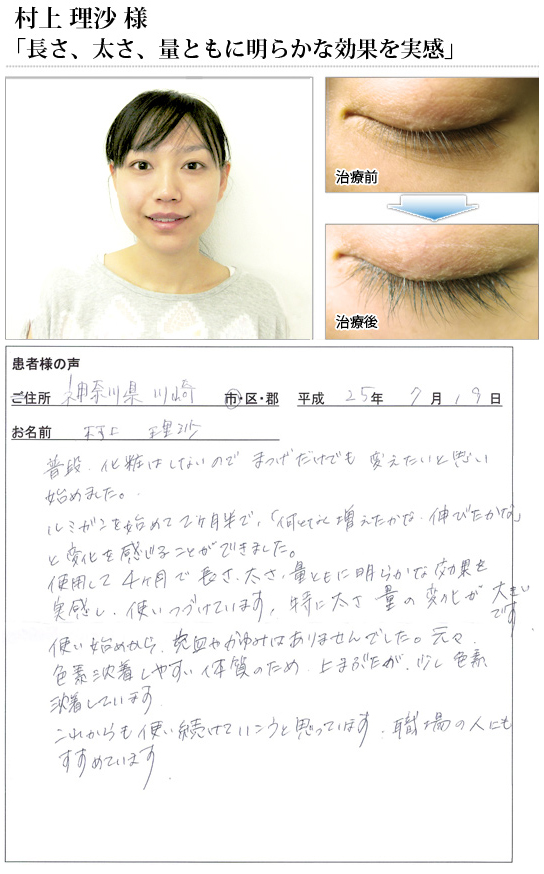 村上 理沙 様
「長さ、太さ、量ともに明らかな効果を実感」
治療前
治療後
患者様の声
ご住所 神奈川県 川崎 市・区・郡 平成 25年 7月 19日
お名前 村上 理沙
普段、化粧はしないので まつげだけでも 変えたいと思い
始めました。
ルミガンを始めて2ヶ月半で、「何となく増えたかな、伸びたかな」
と変化を感じることができました。
使用して4ヶ月で長さ、太さ、量ともに明らかな効果を
実感し、使いつづけています。特に太さ 量の変化が大きい
です
使い始めから、充血やかゆみはありませんでした。元々、
色素沈着しやすい体質のため、上まぶたが、少し色素
沈着しています。
これからも使い続けていこうと思っています。職場の人にも
すすめています。